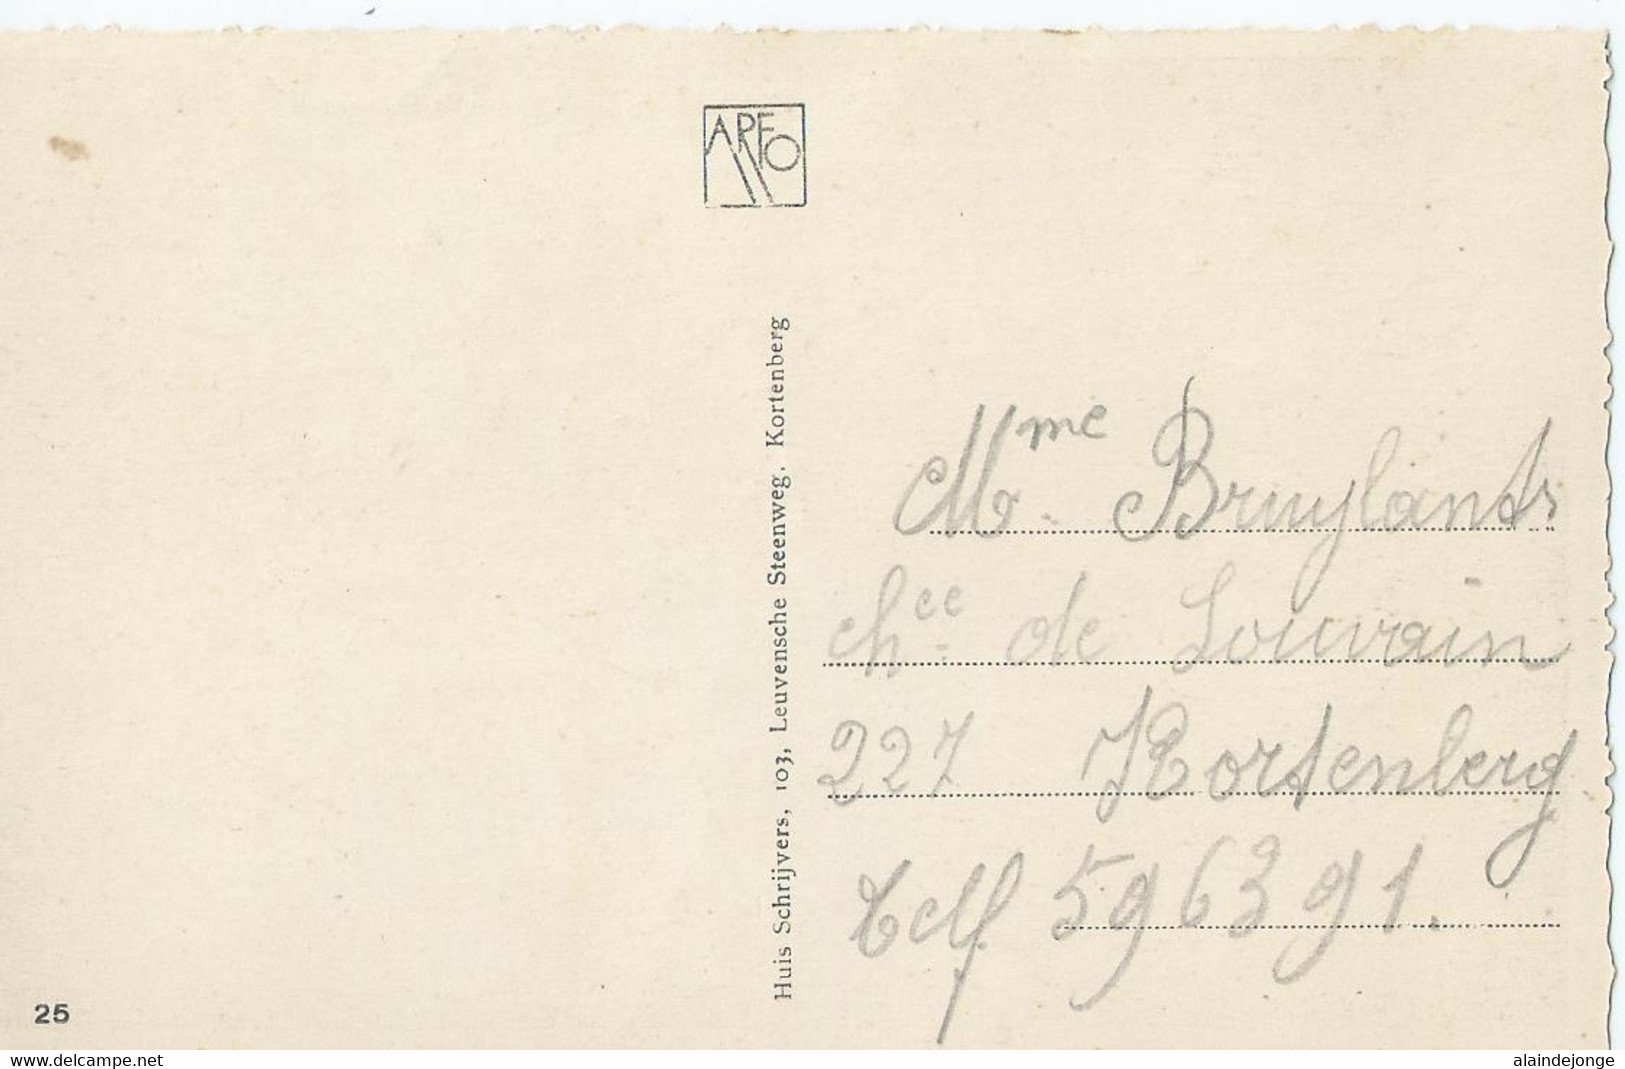 ARFO
Huis Schrijvers, 103, Leuvensche Steenweg. Kortenberg
Mme Bruylants
chee de Louvain
227 Kortenberg
Telf 596391.
25
www.delcampe.net
alaindejonge